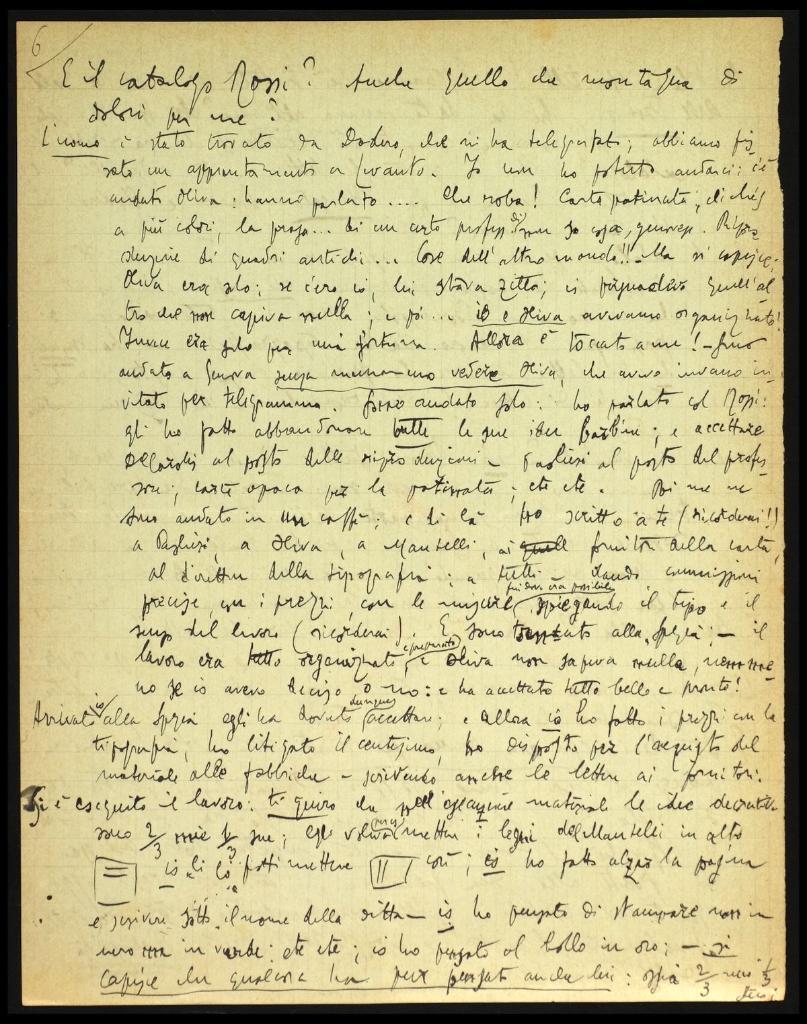 6
E il catalogo Rossi? Anche quello che montagna di
dolori per me?
L'uomo è stato trovato da Dodero, che mi ha telegrafato; abbiamo fis-
sato un appuntamento a Levanto. Io non ho potuto andarci: c'è
andato Oliva: hanno parlato .... Che roba! Carta patinata, clichés
a più colori, la prosa... di un certo profess. di non so cosa, genovese. Ripro-
duzione di quadri antichi... Cose dell'altro mondo!! Ma si capisce:
Oliva era solo; se c'ero io, lui stava zitto; io persuadevo quell'al
tro che non capiva nulla; e poi... io e Oliva avevamo organizzato!
Invece era solo per mia fortuna. Allora è toccato a me! - Sono
andato a Genova senza nemmeno vedere Oliva, che avevo invano in-
vitato per telegramma. Sono andato solo: ho parlato col Rossi:
gli ho fatto abbandonare tutte le sue idee barbine; e accettare
Decaroli al posto delle riproduzioni - Pagliesi al posto del profes
sore; carta opaca per la patinata; etc etc. Poi me ne
sono andato in un caffè; e di là ho scritto a te (ricorderai!)
a Pagliesi, a Oliva, a Mantelli, ai fornitori della carta,
al direttore della tipografia; a tutti dando commissioni
fin dove era possibile
precise, con i prezzi con le misure, spiegando il tipo e il
senso del lavoro (ricorderai). E sono tornato alla Spezia; - il
e preparato
lavoro era tutto organizzato, e Oliva non sapeva nulla, nemme
no se io avevo deciso o no: e ha accettato tutto bello e pronto!
Arrivato io alla Spezia egli ha dovuto dunque accettare; e allora io ho fatto i prezzi con la
tipografia, ho litigato il centesimo, ho disposto per l'acquisto del
materiale alle fabbriche - scrivendo anche le lettere ai fornitori.
Si è eseguito il lavoro: ti giuro che nell'esecuzione materiale le idee decorative
sono 2/3 mie 1/3 sue; egli voleva mettere i legni del Mantelli in alto
io li ho fatti mettere così; io ho fatto alzare la pagina
e scrivere sotto il nome della ditta - io ho pensato di stampare non in
nero ma in verde: etc etc; io ho pensato al bollo in oro; - si
capisce che qualcosa ha pur pensato anche lui: ossia 2/3 miei 1/3
suoi;